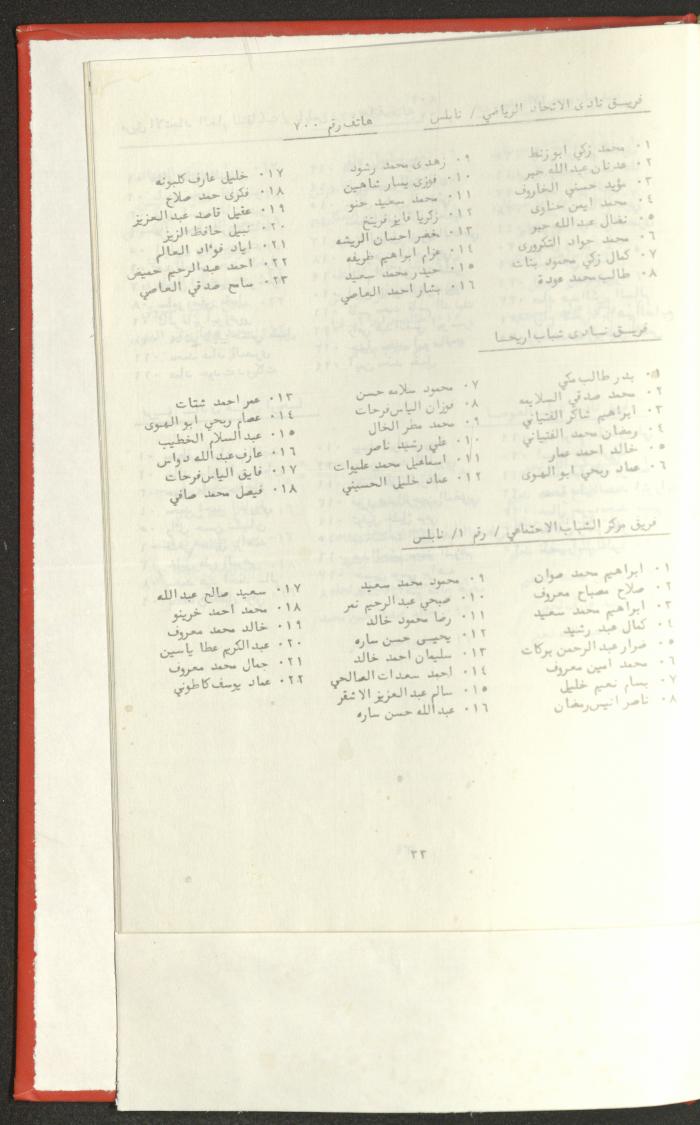 فريق نادى الاتحاد الرياضي / نابلس    هاتف رقم ٧٠٠
٠١ محمد زكي ابو زنط
٠٢ عدنان عبد الله حبر
٠٣ مؤيد حسني الخاروف
٠٤ محمد ايمن حناوى
٠٥ نضال عبد الله حبر
٠٦ محمد جواد التكرورى
٠٧ كمال زكي محمود بنات
٠٨ طالب محمد عودة
٠٩ زهدى محمد رشود
٠١٠ فوزى يسار شاهين
٠١١ محمد سعيد حنو
٠١٢ زكريا فايز فريتخ
٠١٣ خضر احسان الريشه
٠١٤ عزام ابراهيم ظريفه
٠١٥ حيدر محمد سعيد
٠١٦ بشار احمد العاصي
٠١٧ خليل عارف كلبونه
٠١٨ فكرى حمد صلاح
٠١٩ عقيل قاصد عبد العزيز
٠٢٠ نبيل حافظ الزيز
٠٢١ اياد فؤاد العالم
٠٢٢ احمد عبد الرحيم حميض
٠٢٣ سامح صدقي العاصي
فريق نادى شباب اريحا
٠١ بدر طالب مكي
٠٢ محمد صدقي السلايمه
٠٣ ابراهيم شاكر الفتياني
٠٤ رمضان محمد الفتياني
٠٥ خالد احمد عمار
٠٦ عماد ربحي ابو الهوى
٠٧ محمود سلامه حسن
٠٨ فوزان الياس فرحات
٠٩ محمد مطر الخال
٠١٠ علي رشيد ناصر
٠١١ اسماعيل محمد عليوات
٠١٢ عماد خليل الحسيني
٠١٣ عمر احمد شتات
٠١٤ عصام ربحي ابو الهوى
٠١٥ عبد السلام الخطيب
٠١٦ عارف عبد الله دواس
٠١٧ فايق الياس فرحات
٠١٨ فيصل محمد صافي
فريق مركز الشباب الاجتماعي / رقم ١/ نابلس
٠١ ابراهيم محمد صوان
٠٢ صلاح مصباح معروف
٠٣ ابراهيم محمد سعيد
٠٤ كمال عبد رشيد
٠٥ ضرار عبد الرحمن بركات
٠٦ محمد امين معروف
٠٧ بسام نعيم خليل
٠٨ ناصر انيس رمضان
٠٩ محمود محمد سعيد
٠١٠ صبحي عبد الرحيم نمر
٠١١ رضا محمود خالد
٠١٢ يحيى حسن ساره
٠١٣ سليمان احمد خالد
٠١٤ احمد سعدات الصالحي
٠١٥ سالم عبد العزيز الاشقر
٠١٦ عبد الله حسن ساره
٠١٧ سعيد صالح عبد الله
٠١٨ محمد احمد خرينو
٠١٩ خالد محمد معروف
٠٢٠ عبد الكريم عطا ياسين
٠٢١ جمال محمد معروف
٠٢٢ عماد يوسف كاطوني
٣٣